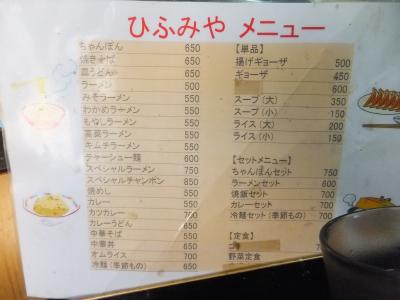 ひふみや メニュー
ちゃんぽん 650
焼きそば 650
皿うどん 650
ラーメン 500
みそラーメン 550
わかめラーメン 550
もやしラーメン 550
高菜ラーメン 550
キムチラーメン 550
チャーシュー麺 600
スペシャルラーメン 750
スペシャルチャンポン 850
焼めし 550
カレー 550
カツカレー 700
カレーうどん 650
中華そば 550
中華丼 650
オムライス 700
冷麺(季節もの) 650
【単品】
揚げギョーザ 500
ギョーザ 450
600
スープ(大) 350
スープ(小) 150
ライス(大) 200
ライス(小) 150
【セットメニュー】
ちゃんぽんセット 750
ラーメンセット 600
焼飯セット 700
カレーセット 700
冷麺セット(季節もの) 700
【定食】
700
野菜定食